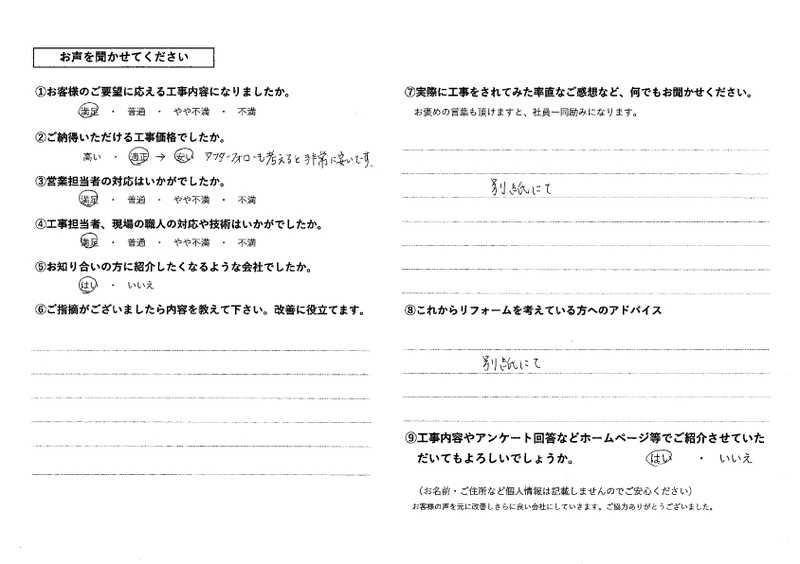 お声を聞かせてください
①お客様のご要望に応える工事内容になりましたか。
満足 ・ 普通 ・ やや不満 ・ 不満
②ご納得いただける工事価格でしたか。
高い ・ 適正 → 安い アフターフォローも考えると非常に安いです。
③営業担当者の対応はいかがでしたか。
満足 ・ 普通 ・ やや不満 ・ 不満
④工事担当者、現場の職人の対応や技術はいかがでしたか。
満足 ・ 普通 ・ やや不満 ・ 不満
⑤お知り合いの方に紹介したくなるような会社でしたか。
はい ・ いいえ
⑥ご指摘がございましたら内容を教えて下さい。改善に役立てます。
⑦実際に工事をされてみた率直なご感想など、何でもお聞かせください。
お褒めの言葉も頂けますと、社員一同励みになります。
別紙にて
⑧これからリフォームを考えている方へのアドバイス
別紙にて
⑨工事内容やアンケート回答などホームページ等でご紹介させていた
だいてもよろしいでしょうか。 はい ・ いいえ
（お名前・ご住所など個人情報は記載しませんのでご安心ください）
お客様の声を元に改善しさらに良い会社にしていきます。ご協力ありがとうございました。